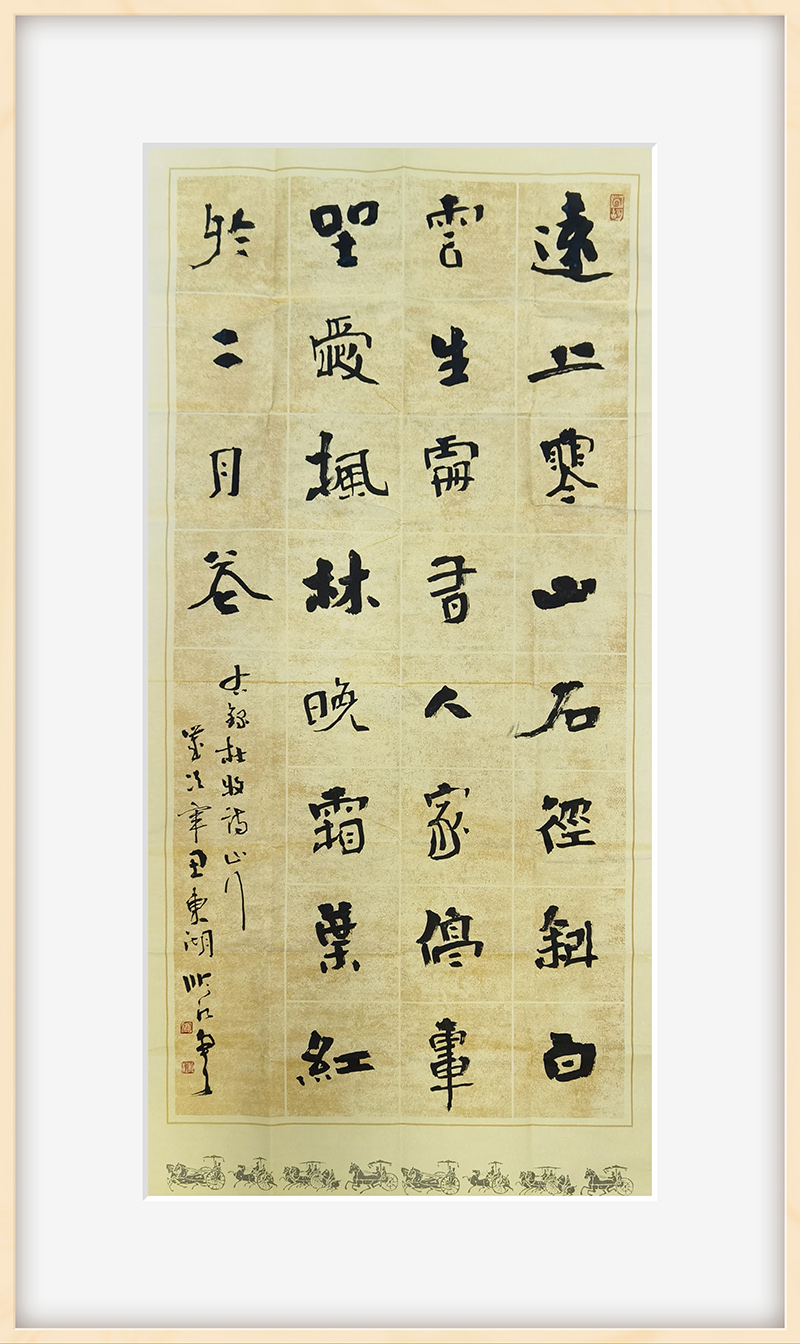 遠上寒山石徑斜白
雲生處有人家停車
坐愛楓林晚霜葉紅
於二月花
右錄杜牧詩山行
歲次辛丑東湖